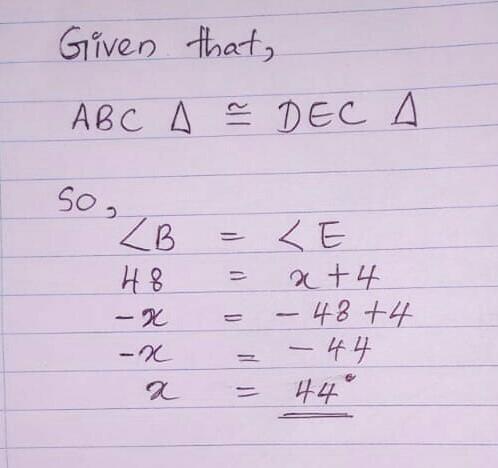 Given that,
ABC Δ ≅ DEC Δ
So,
∠B = ∠E
48 = x+4
-x = -48+4
-x = -44
x = 44°